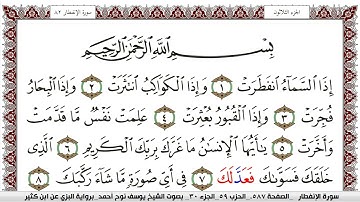 الجزء الثلاثون
سورة الإنفطار ٨٢
بِسْمِ ٱللَّهِ ٱلرَّحْمَٰنِ ٱلرَّحِيمِ
إِذَا ٱلسَّمَآءُ ٱنفَطَرَتْ ١ وَإِذَا ٱلْكَوَاكِبُ ٱنتَثَرَتْ ٢ وَإِذَا ٱلْبِحَارُ
فُجِّرَتْ ٣ وَإِذَا ٱلْقُبُورُ بُعْثِرَتْ ٤ عَلِمَتْ نَفْسٌ مَّا قَدَّمَتْ
وَأَخَّرَتْ ٥ يَٰٓأَيُّهَا ٱلْإِنسَٰنُ مَا غَرَّكَ بِرَبِّكَ ٱلْكَرِيمِ ٦ ٱلَّذِى
خَلَقَكَ فَسَوَّىٰكَ فَعَدَّلَكَ ٧ فِىٓ أَىِّ صُورَةٍ مَّا شَآءَ رَكَّبَكَ ٨
سورة الانفطار الصفحة ٥٨٧ الحزب ٥٩ الجزء ٣٠ بصوت الشيخ يوسف نوح أحمد برواية البزي عن ابن كثير